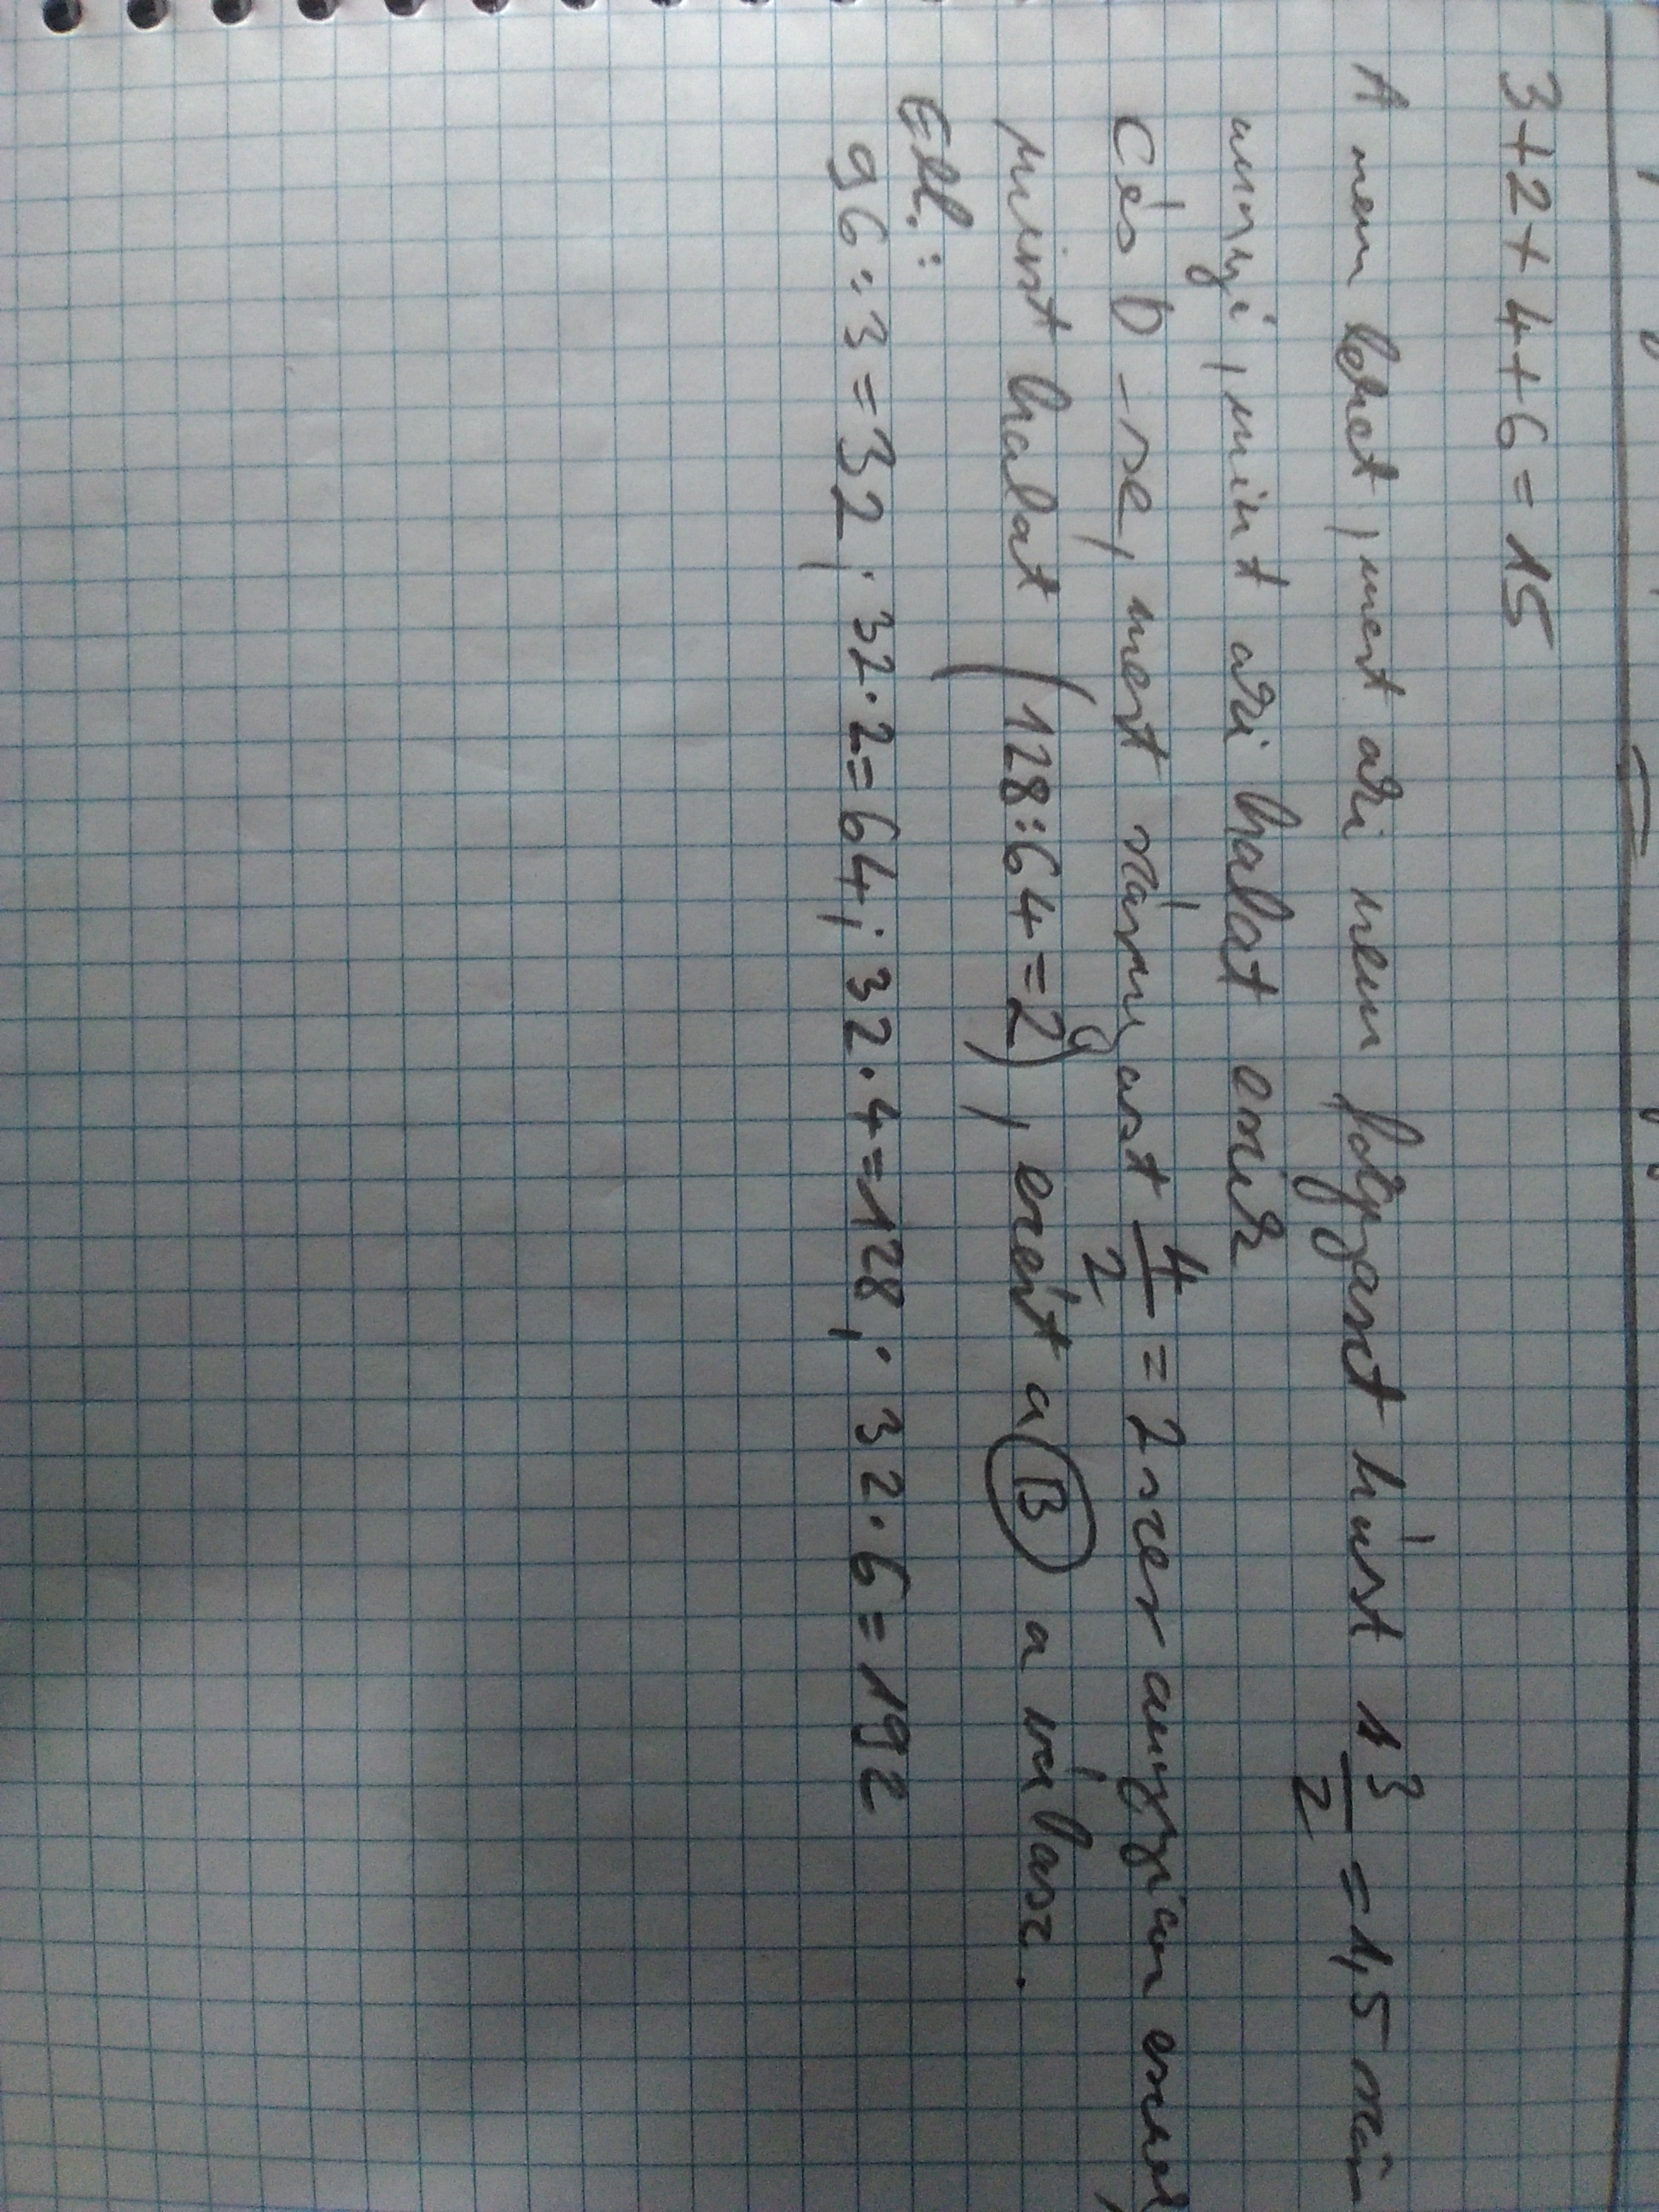 3+2+4+6=15
A nem lehet, mert aki nem fogyaszt húst 1 3/2 = 1,5 ször
annyi, mint aki halat eszik
C és D se, mert szárnyast 4/2 = 2 szer annyian esznek,
mint halat (128:64=2), ezért a B a válasz.
Ell.:
96:3=32; 32·2=64; 32·4=128; 32·6=192